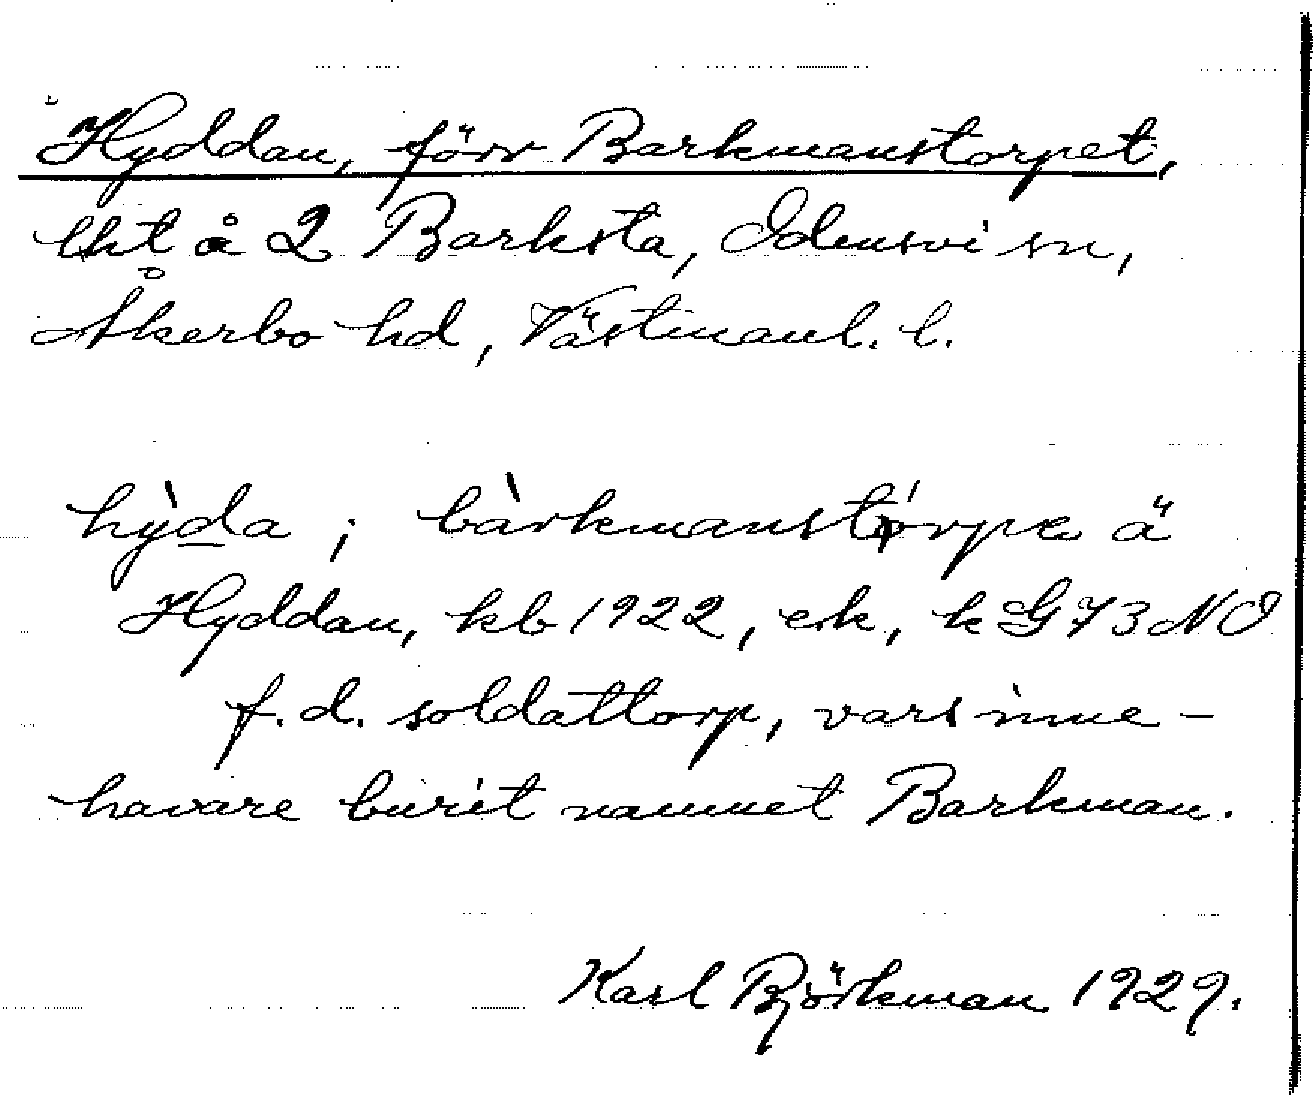 Hyddan, förr Barkmanstorpet,
lht å 2 Barksta, Odensvi sn,
Åkerbo hd, Västmanl. l.
hỳda ; bàrkmanstórpe ä
Hyddan, kb 1922, ek, k G73NO
f.d. soldattorp, vars inne-
havare burit namnet Barkman.
Karl Björkman 1929.